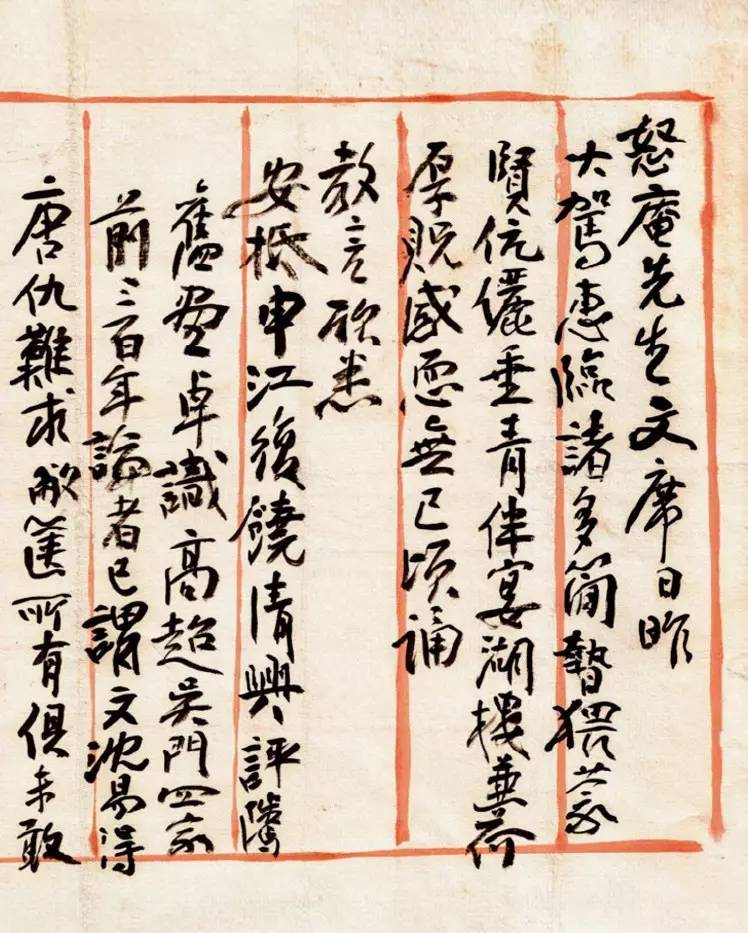 恕庵先生文席日昨
大駕惠臨諸多簡褻猥蒙
賢伉儷垂青伴宴湖樓兼荷
厚貺感恧無已頃誦
教言欣悉
安抵申江後饒清興評隲
舊畫卓識高超吳門四家
前三百年論者已謂文沈易得
唐仇難求敝篋所有俱未敢